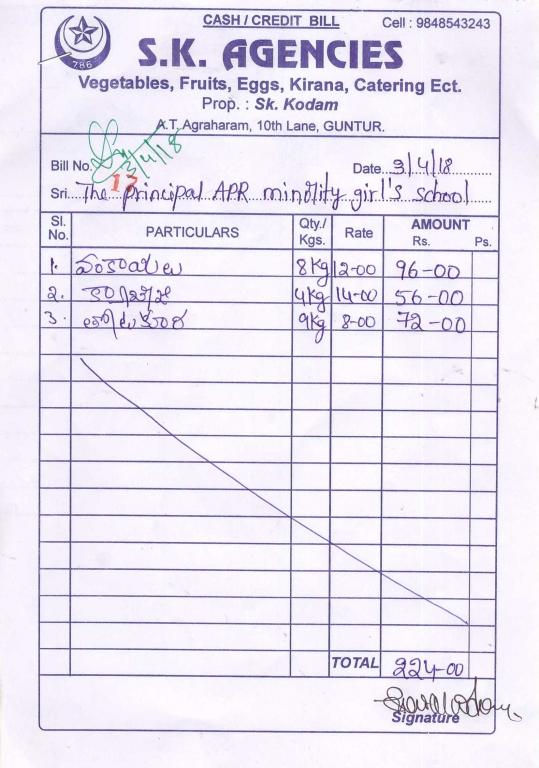 CASH / CREDIT BILL
Cell : 9848543243
786
S.K. AGENCIES
Vegetables, Fruits, Eggs, Kirana, Catering Ect.
Prop. : Sk. Kodam
A.T. Agraharam, 10th Lane, GUNTUR.
3/4/18
Bill No. 13 Date 3/4/18
Sri. The principal APR minority girl's school
Sl. No. PARTICULARS Qty./ Kgs. Rate AMOUNT Rs. Ps.
1. వంకాయలు 8 Kg 12-00 96-00
2. 4 Kg 14-00 56-00
3. 9 Kg 8-00 72-00
TOTAL 224-00
Signature